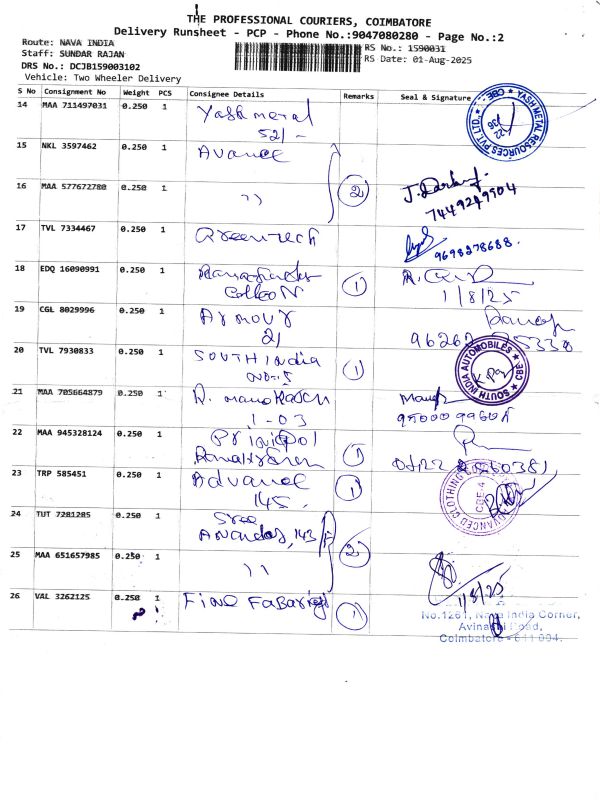 THE PROFESSIONAL COURIERS, COIMBATORE
Delivery Runsheet - PCP - Phone No.:9047080280 - Page No.:2
Route: NAVA INDIA
RS No.: 1590031
Staff: SUNDAR RAJAN
RS Date: 01-Aug-2025
DRS No.: DCJB159003102
Vehicle: Two Wheeler Delivery
S No Consignment No Weight PCS Consignee Details Remarks Seal & Signature
14 MAA 711497031 0.250 1 Yash metal
52/-
YASH METAL RESOURCES PVT LTD., CBE
15 NKL 3597462 0.250 1 Avanee
16 MAA 577672780 0.250 1 ,, 2
17 TVL 7334467 0.250 1 Greentech 9698278688.
18 EDQ 16090991 0.250 1 1
1/8/25
19 CGL 8029996 0.250 1 Armour
21
20 TVL 7930833 0.250 1 South India 1
SOUTH INDIA AUTOMOBILES CBE
21 MAA 705664879 0.250 1 R. manokaran
1-03
22 MAA 945328124 0.250 1 1
23 TRP 585451 0.250 1 Advance 1
145.
ADVANCED CLOTHING CBE-4
24 TUT 7281285 0.250 1 Sree
Anandas, 143 2
25 MAA 651657985 0.250 1 ,,
1/8/25
26 VAL 3262125 0.250 1 Fine 1
No.1261, Nava India Corner,
Avinashi Road,
Coimbatore - 641 004.